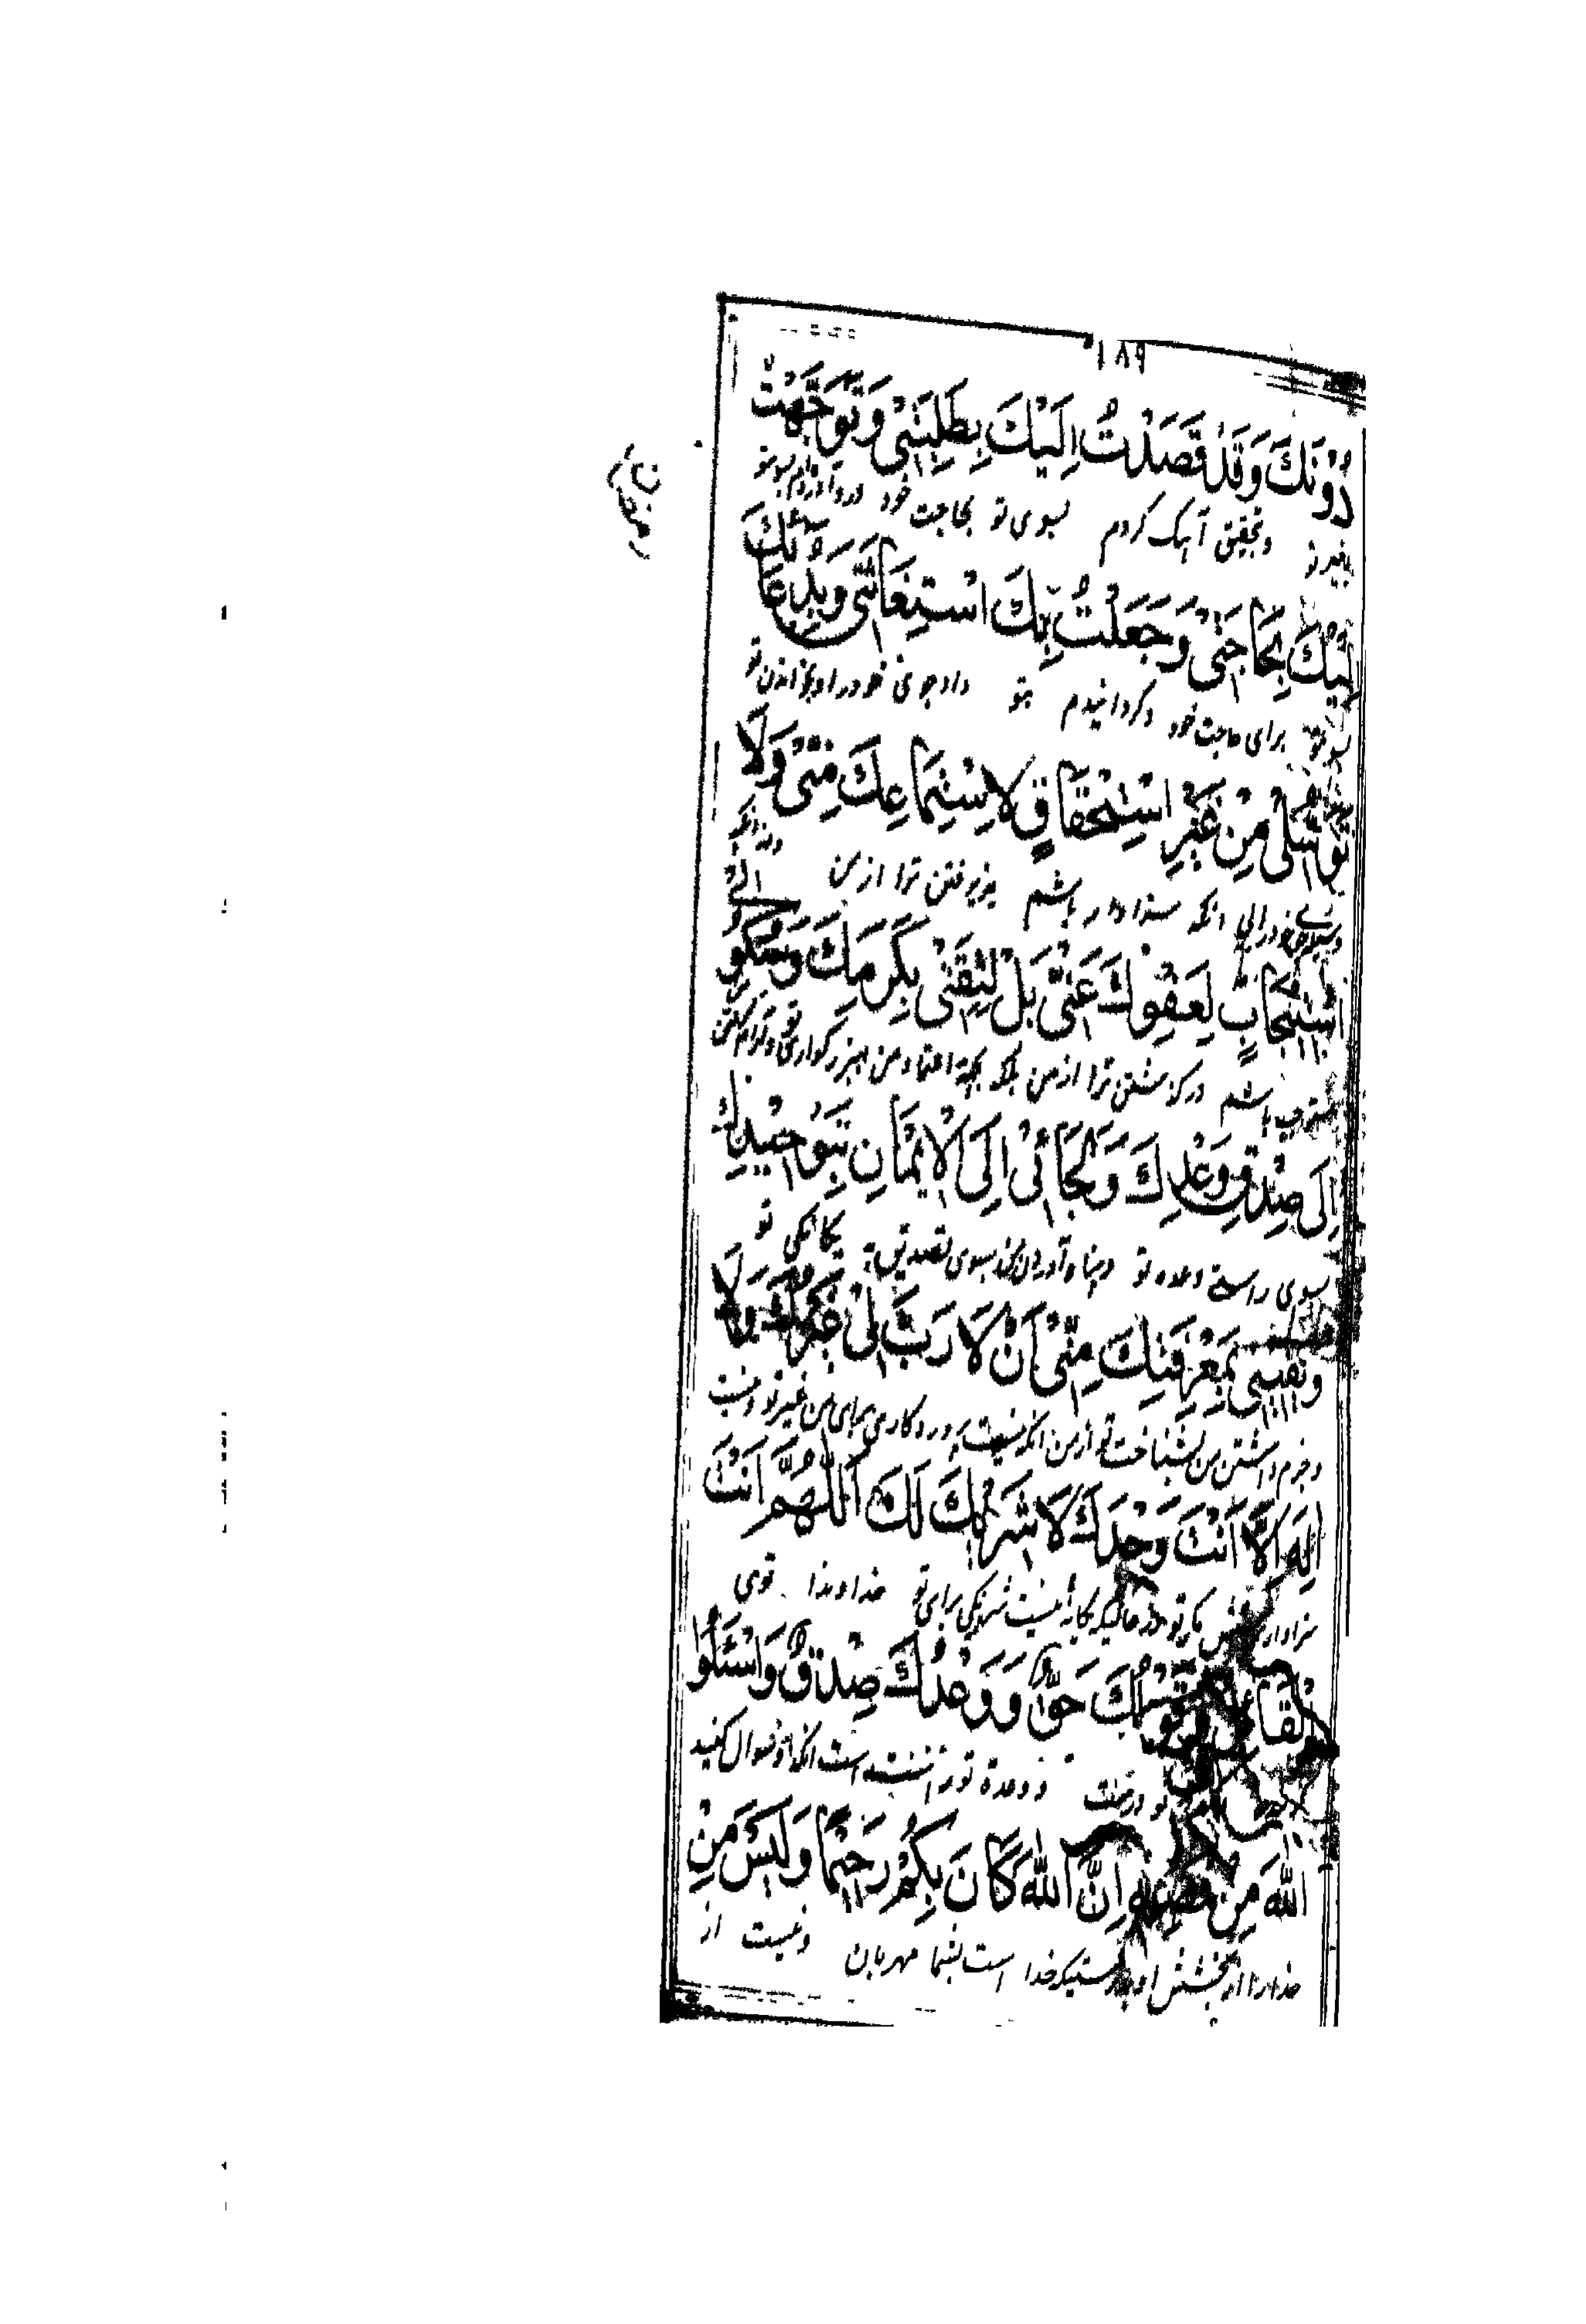 ۱۸۹
دُونَكَ وَقَدْ قَصَدْتُ اِلَيْكَ بِطَلِبَتِیْ وَتَوَجَّهْتُ
بغیر تو و بتحقیق آهنک کردم بسوی تو بحاجت خود
اِلَيْكَ بِحَاجَتِیْ وَجَعَلْتُ بِكَ اسْتِغَاثَتِیْ وَبِدُعَائِكَ
برای حاجت خود و گردانیدم بتو دادجوئی خود را و بخواندن تو
تَوَسُّلِیْ مِنْ غَيْرِ اسْتِحْقَاقٍ لِاسْتِمَاعِكَ مِنِّیْ وَلَا
انکه سزاوار باشم پذیرفتن ترا از من
اسْتِيْجَابٍ لِعَفْوِكَ عَنِّیْ بَلْ لِثِقَتِیْ بِكَرَمِكَ وَسُكُوْنِیْ
مستوجب باشم در گذشتن ترا از من بلکه بجهة اعتماد من
اِلَى صِدْقِ وَعْدِكَ وَلَجَائِیْ اِلَى الْاِيْمَانِ بِتَوْحِيْدِكَ
بسوی راستی وعده تو و پناه آوردن من بسوی تصدیق یگانگی تو
وَيَقِيْنِیْ بِمَعْرِفَتِكَ مِنِّیْ اَنْ لَا رَبَّ لِیْ غَيْرُكَ وَلَا
و جزم داشتن من بشناخت تو از من انکه نیست پروردگاری برای من غیر تو و نیست
اِلٰهَ اِلَّا اَنْتَ وَحْدَكَ لَا شَرِيْكَ لَكَ اَللّٰهُمَّ اَنْتَ
مگر تو نیست شریکی برای تو خداوندا توی
الْقَائِلُ وَقَوْلُكَ حَقٌّ وَوَعْدُكَ صِدْقٌ وَاسْئَلُوا
و وعده تو راست است و سوال کنید
اللّٰهَ مِنْ فَضْلِهِ اِنَّ اللّٰهَ كَانَ بِكُمْ رَحِيْمًا وَلَيْسَ مِنْ
خدا را از بخشش او بدرستیکه خدا است بشما مهربان و نیست از